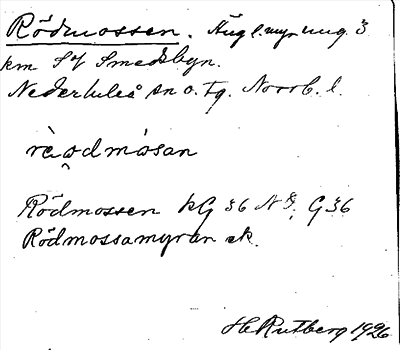 Rödmossen. Äng l. myr ung. 3
km SV Smedsbyn.
Nederluleå sn o. tg. Norrb. l.
rὲ̀ədmòsan
Rödmossen kG 36 NÖ, G 36
Rödmossamyran ek.
H. Rutberg 1926